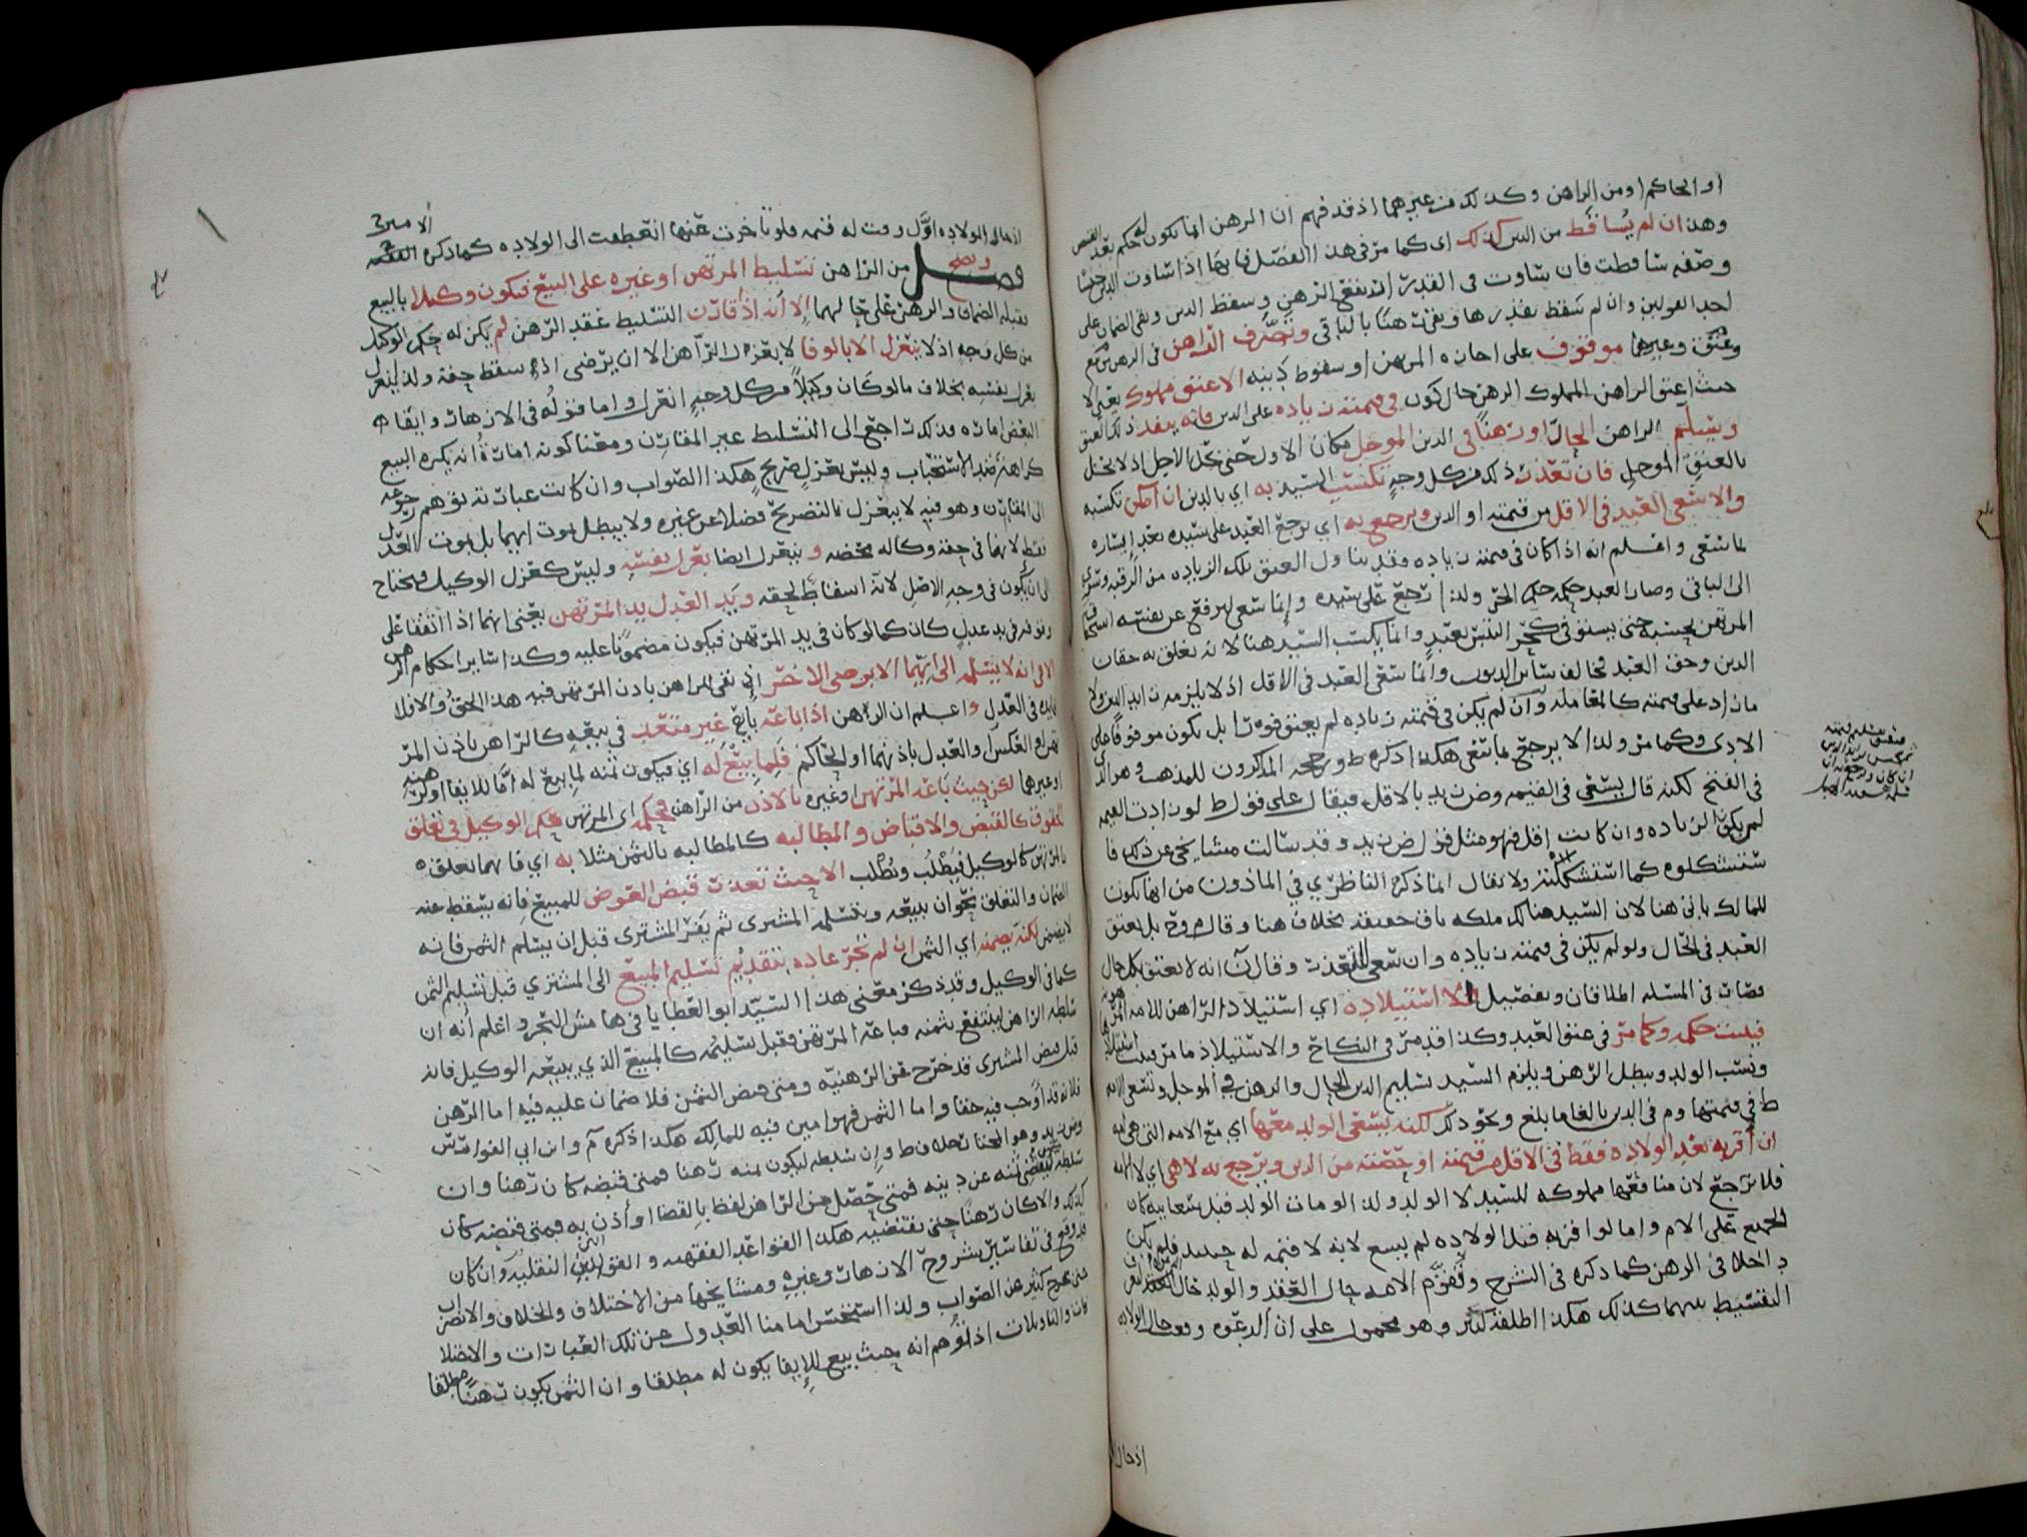 او الحاكم او من الراهن وكذلك من غيرهما اذ قد فهم ان الرهن انما يكون له حكم بعد القبض
وهذا ان لم يساقط من الدين كذلك اى كما مر فى هذا الفصل فاما اذا تساوت الدين جنسا
وصفه تساقطت فان تساوت فى القدر ارتفع الرهن وسقط الدين وبقى الضمان على
احد القولين وان لم سقط بقدرها وبقيت رهنا بالباقى وتصرف الراهن فى الرهن ببيع
وعتق وغيرهما موقوف على اجازه المرتهن او سقوط دينه الا عتق مملوك يعنى لا
حيث اعتق الراهن المملوك الرهن حال كون فى قيمته زياده على الدين فانه ينفذ ذلك العتق
ويسلم الراهن الحال او رهنا فى الدين الموجل مكان الاول حتى يحل الاجل اذ لا يحل
بالعتق الموجل فان تعذرت ذلك من كل وجه تكسب السيد به اي بالدين ان امكن تكسبه
والا سعى العبد فى الاقل من قيمته او الدين ويرجع به اي يرجع العبد على سيده بعد ايساره
بما سعى واعلم انه اذا كان فى قيمته زياده فقد تناول العتق تلك الزياده من الرقبه وسرى
الى الباقى وصار العبد حكمه حكم الحر ولذا رجع على سيده وانما سعى ليرفع عن نفسه استحقاق
المرتهن لحبسه حتى يستوفى
الدين وحق العبد مخالف سائر الديون وانما سعى العبد فى الاقل اذ لا يلزمه زايد الدين ولا
ما زاد على قيمته كالمعامله وان لم يكن فى قيمته زياده لم يعتق فورا بل يكون موقوفا على
الادى وكما مر ولذا لا يرجع بما سعى هكذا ذكره ط و المذكرون للمذهب وهو الذ
فى الفتح لكنه قال يسعى فى القيمه وض زيد بالاقل فيقال على قول ط لو زادت القيمه
لم يكن الزياده وان كانت اقل فهو مثل قول ض زيد وقد سالت مشايخى عن ذلك فا
ستشكلوه كما استشكلته ولا يقال انما ذكره الناظري فى الماذون من انها يكون
للمالك ياتى هنا لان السيد هناك ملكه باق حقيقه بخلاف هنا وقال م وح بل يعتق
العبد فى الحال ولو لم يكن فى قيمته زياده وان سعى للتعذر وقال ن انه لا يعتق بكل حال
فصارت فى المسئله اطلاقان وتفصيل والا استيلاده اي استيلاد الراهن للامه المرهونه
فيثبت حكمه وكما مر فى عتق العبد وكذا قد مر فى النكاح والاستيلاد ما مر
ونسب الولد ويبطل الرهن ويلزم السيد تسليم الدين الحال والرهن فى الموجل وتسعى الامه
ط فى قيمتها وم فى الدين بالغا ما بلغ ونحو ذلك لكنه يسعى الولد معها اي مع الامه التى هى امه
ان اقر به بعد الولاده فقط فى الاقل من قيمته او حصته من الدين ويرجع به لا هى اي لا امه
فلا ترجع لان منافعها مملوكه للسيد لا الولد ولذا لو مات الولد قبل سعايته كان
الجميع على الام واما لو اقر به قبل الولاده لم يسع لانه لا قيمه له حينئذ فلم يكن
داخلا فى الرهن كما ذكره فى الشرح وتقوم الامه حال العقد والولد حال
التقسيط بينهما كذلك هكذا اطلقه كثير وهو محمول على ان الدعوه وقعت حال الولاده
اذ حال ال
اذ حال الولاده اول وقت له قيمه فلو تاخرت عنها انعطفت الى الولاده كما ذكره الفقيه
الامير ح
فصل ويصح من الراهن تسليط المرتهن او غيره على البيع فيكون وكيلا بالبيع
بقبله الضمان والرهن على حالهما الا انه اذا قارن التسليط عقد الرهن لم يكن له حكم الوكيل
من كل وجه اذ لا ينعزل الا بالوفا لا بعزل الراهن الا ان يرضى اذ سقط حقه ولذا ينعزل
بعزل نفسه بخلاف ما لو كان وكيلا من كل وجه انعزل واما قوله فى الازهار وايفاء
البعض اماره فذلك راجع الى التسليط غير المقارن ومعنا كونه امارة انه يكره البيع
كراهة ضد الاستحباب وليس بعزل صريح هكذا الصواب وان كانت عبارته توهم رجوعه
الى المقارن وهو فيه لا ينعزل بالتصريح فضلا عن غيره ولا يبطل بموت ايهما بل بموت العدل
فقط لانها فى حقه وكاله محضه وينعزل ايضا بعزل نفسه وليس كعزل الوكيل فيحتاج
الى ان يكون فى وجه الاصل لانه اسقاط لحقه ويد العدل يد المرتهن يعنى انهما اذا اتفقا على
وقوفه فى يد عدل كان كما لو كان فى يد المرتهن فيكون مضمونا عليه وكذا سائر احكام الرهن
الا فى انه لا يسلمه الى ايهما الا برضى الاخر اذ بقى للراهن باذن المرتهن فيه هذا الحق والا فلا
فايده فى العدل واعلم ان الرهن اذا باعه بايع غير متعد فى بيعه كالراهن باذن المرتهن
او العكس او العدل باذنهما او الحاكم فلما بيع له اي فيكون ثمنه لما بيع له اما للايفا او لرهنه
او غيرها لكن حيث باعه المرتهن او غيره بالاذن من الراهن فحكمه اى المرتهن حكم الوكيل فى تعلق
الحقوق كالقبض والاقباض والمطالبه كالمطالبه بالثمن مثلا به اي فانهما تعلقه
بالمرتهن كالوكيل فيطلب ويطلب الا حيث تعذر قبض العوض للمبيع فانه يسقط عنه
الضمان والتعلق نحو ان يبيعه وتسلمه المشترى ثم يفر المشترى قبل ان يسلم الثمن فانه
لا يضمن لكنه يضمنه اي الثمن ان لم تجر عاده بتقديم تسليم المبيع الى المشتري قبل تسليم الثمن
كما فى الوكيل وقد ذكر معنى هذا السيد ابو العطايا فى هامش البحر واعلم انه ان
سلطه الراهن لينتفع بثمنه فباعه المرتهن فقبل تسليمه كالمبيع الذي يبيعه الوكيل فان
قبل قبض المشترى قد خرج عن الرهنيه ومتى قبض الثمن فلا ضمان عليه فيه اما الرهن
فلانه قد اوجب فيه حقا واما الثمن فهو امين فيه للمالك هكذا ذكره م وابن ابي الفوارس
وض زيد وهو المختار بخلاف ط وان سلطه ليكون ثمنه رهنا فمتى قبضه كان رهنا وان
سلطه ليقبض ثمنه عن دينه فمتى حصل من الراهن لفظ بالقضا او اذن به فمتى قبضه كان
كذلك والا كان رهنا حتى يقتضيه هكذا القواعد الفقهيه و التقليد وان كان
قد وقع فى تفاسير شروح الازهار وغيره ومشايخها من الاختلاف والخلاف والاضراب
حتى خرج كثير عن الصواب ولذا استحسن امامنا العدول عن تلك العبارات والاضلا
فات والتاويلات اذ توهم انه حيث بيع للايفا يكون له مطلقا وان الثمن يكون رهنا مطلقا